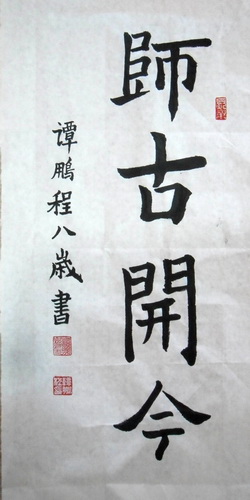 師古開今
谭鵬程八歲書